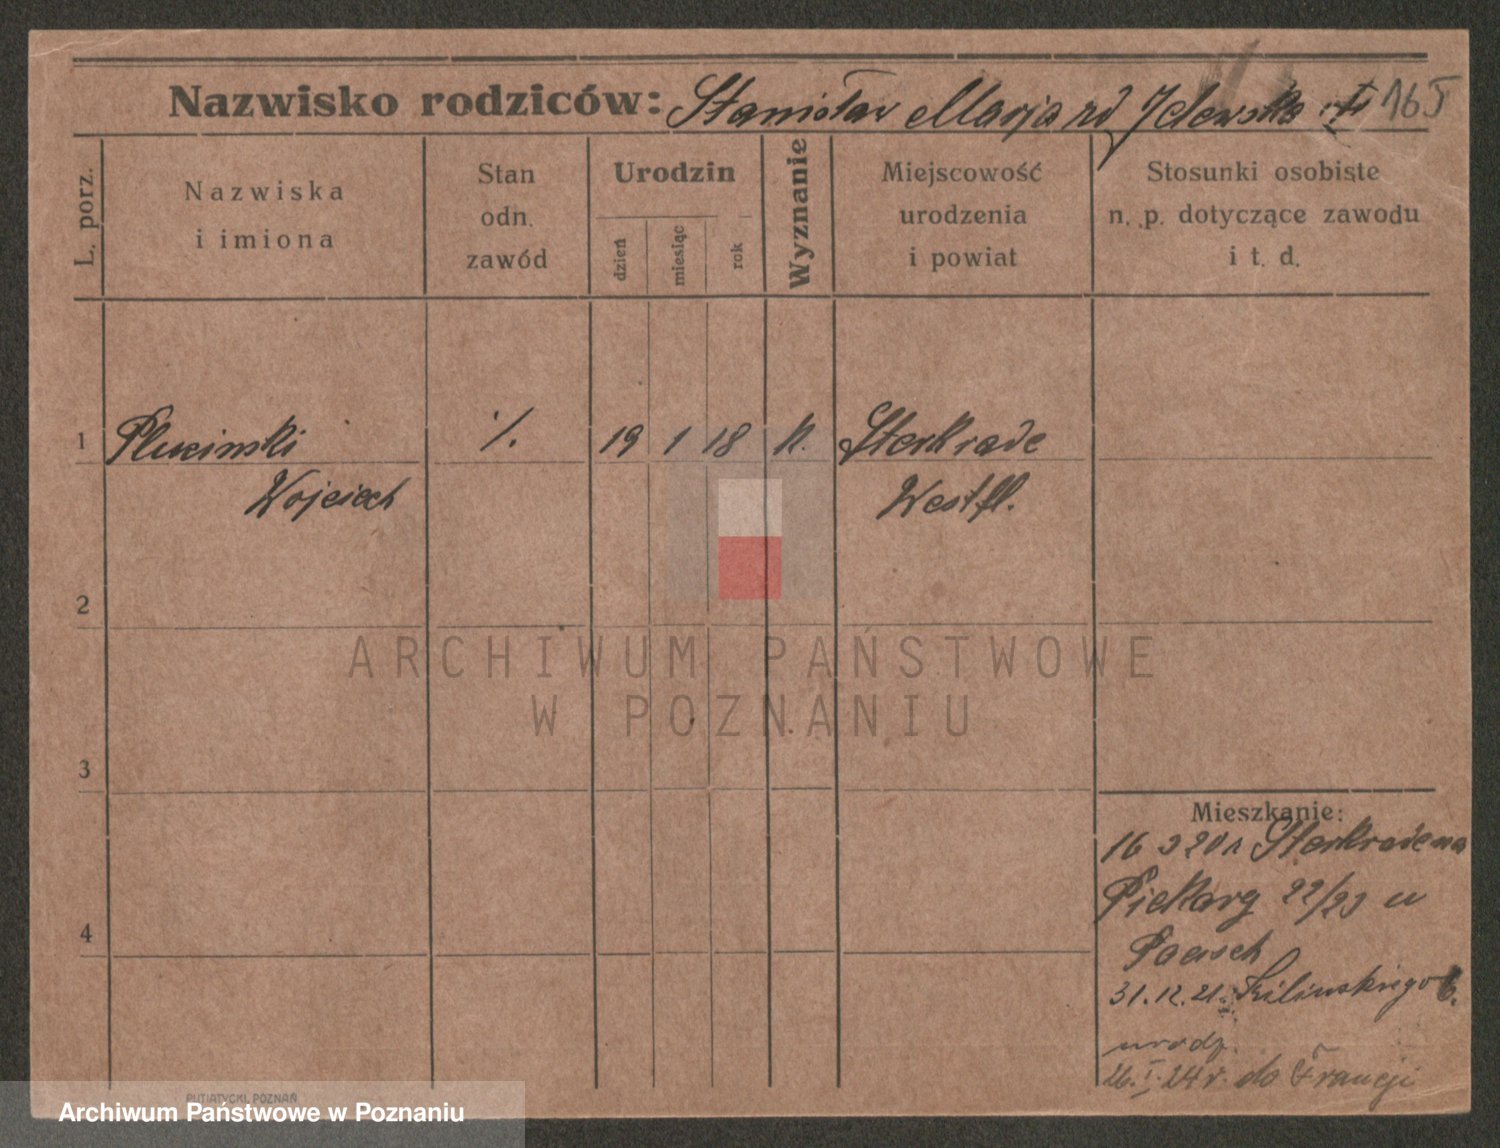 Nazwisko rodziców: Stanisław Marja rd 165
L. porz.
Nazwiska
i imiona
Stan
odn.
zawód
Urodzin
dzień
miesiąc
rok
Wyznanie
Miejscowość
urodzenia
i powiat
Stosunki osobiste
n. p. dotyczące zawodu
i t. d.
1 Plucinski ·/. 19 1 18 k. Sterkrade
Wojciech Westfl.
2
ARCHIWUM PAŃSTWOWE
W POZNANIU
3
Mieszkanie:
16 3 20 r Sterkrade na
Piekary 22/23 u
Paesch
4
31.12.21. Kilinskiego 6.
urodz.
26.I.24 r. do Francji
PUTIATYCKI, POZNAŃ
Archiwum Państwowe w Poznaniu